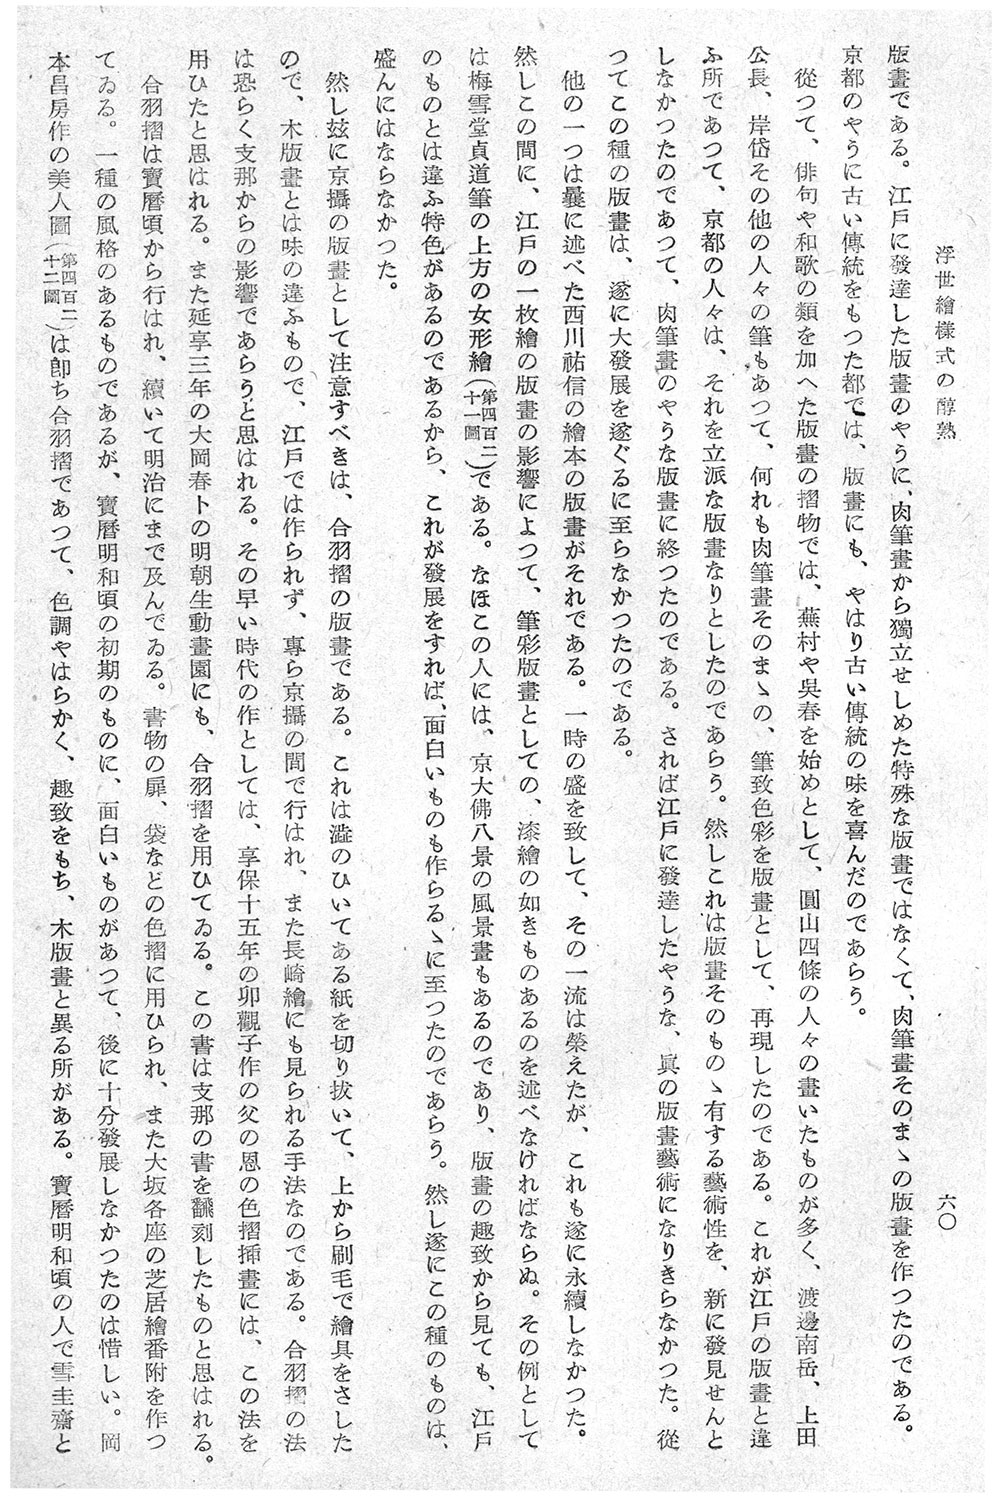 浮世繪樣式の醇熟
六〇
版畫である。江戸に發達した版畫のやうに、肉筆畫から獨立せしめた特殊な版畫ではなくて、肉筆畫そのまゝの版畫を作つたのである。
京都のやうに古い傳統をもつた都では、版畫にも、やはり古い傳統の味を喜んだのであらう。
從つて、俳句や和歌の類を加へた版畫の摺物では、蕪村や吳春を始めとして、圓山四條の人々の畫いたものが多く、渡邊南岳、上田
公長、岸岱その他の人々の筆もあつて、何れも肉筆畫そのまゝの、筆致色彩を版畫として、再現したのである。これが江戸の版畫と違
ふ所であつて、京都の人々は、それを立派な版畫なりとしたのであらう。然しこれは版畫そのものゝ有する藝術性を、新に發見せんと
しなかつたのであつて、肉筆畫のやうな版畫に終つたのである。されば江戸に發達したやうな、眞の版畫藝術になりきらなかつた。從
つてこの種の版畫は、遂に大發展を遂ぐるに至らなかつたのである。
他の一つは曩に述べた西川祐信の繪本の版畫がそれである。一時の盛を致して、その一流は榮えたが、これも遂に永續しなかつた。
然しこの間に、江戸の一枚繪の版畫の影響によつて、筆彩版畫としての、漆繪の如きものあるのを述べなければならぬ。その例として
は梅雪堂貞道筆の上方の女形繪(第四百二十一圖)である。なほこの人には、京大佛八景の風景畫もあるのであり、版畫の趣致から見ても、江戸
のものとは違ふ特色があるのであるから、これが發展をすれば、面白いものも作らるゝに至つたのであらう。然し遂にこの種のものは、
盛んにはならなかつた。
然し玆に京攝の版畫として注意すべきは、合羽摺の版畫である。これは澁のひいてある紙を切り拔いて、上から刷毛で繪具をさした
ので、木版畫とは味の違ふもので、江戸では作られず、專ら京攝の間で行はれ、また長崎繪にも見られる手法なのである。合羽摺の法
は恐らく支那からの影響であらうと思はれる。その早い時代の作としては、享保十五年の卯觀子作の父の恩の色摺揷畫には、この法を
用ひたと思はれる。また延享三年の大岡春卜の明朝生動畫園にも、合羽摺を用ひてゐる。この書は支那の書を飜刻したものと思はれる。
合羽摺は寶曆頃から行はれ、續いて明治にまで及んでゐる。書物の扉、袋などの色摺に用ひられ、また大坂各座の芝居繪番附を作つ
てゐる。一種の風格のあるものであるが、寶曆明和頃の初期のものに、面白いものがあつて、後に十分發展しなかつたのは惜しい。岡
本昌房作の美人圖(第四百二十二圖)は卽ち合羽摺であつて、色調やはらかく、趣致をもち、木版畫と異る所がある。寶曆明和頃の人で雪圭齋と